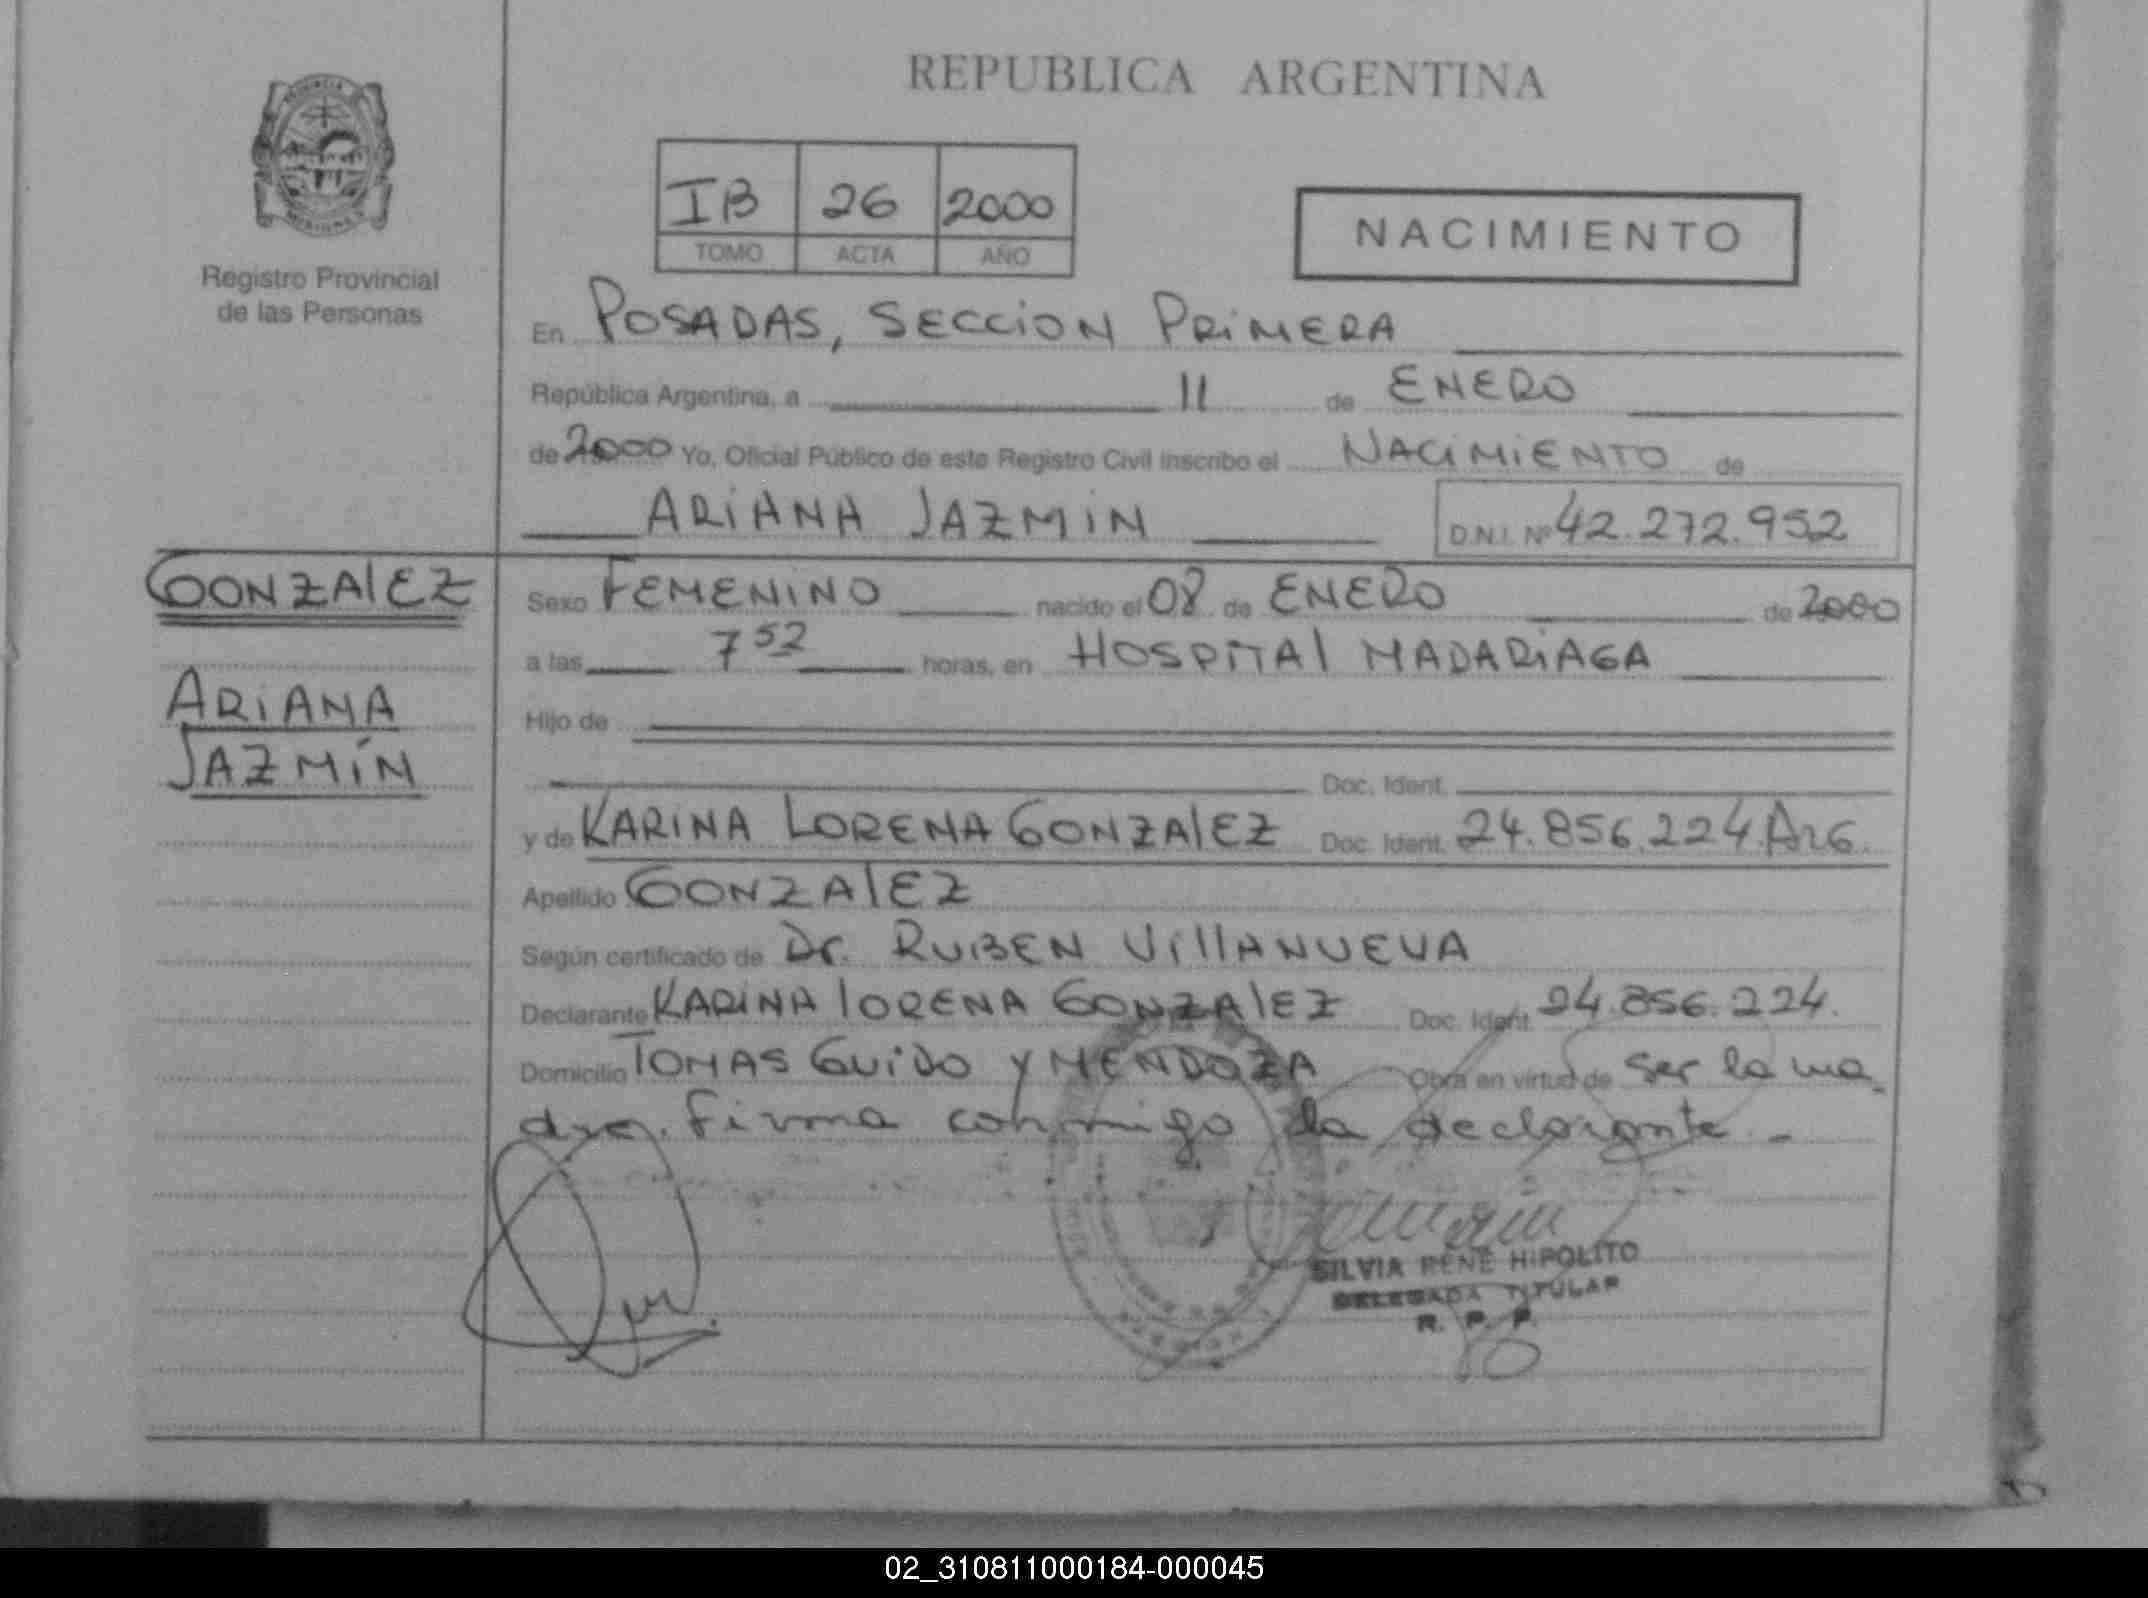 REPUBLICA ARGENTINA
IB 26 2000
TOMO ACTA AÑO
NACIMIENTO
Registro Provincial
de las Personas
En POSADAS, SECCION PRIMERA
República Argentina, a 11 de ENERO
de 2000 Yo, Oficial Público de este Registro Civil inscribo el NACIMIENTO de
ARIANA JAZMIN D.N.I. Nº 42.272.952
GONZALEZ
ARIANA
JAZMÍN
Sexo FEMENINO nacido el 08 de ENERO de 2000
a las 7 52 horas, en HOSPITAL MADARIAGA
Hijo de
Doc. Ident.
y de KARINA LORENA GONZALEZ Doc. Ident. 24.856.224 Arg.
Apellido GONZALEZ
Según certificado de Dr. RUBEN VILLANUEVA
Declarante KARINA LORENA GONZALEZ Doc. Ident. 24.856.224.
Domicilio TOMAS GUIDO Y MENDOZA Obra en virtud de ser la ma-
dre. Firma conmigo la declarante.-
SILVIA RENE HIPOLITO
DELEGADA TITULAR
R. P. P.
02_310811000184-000045